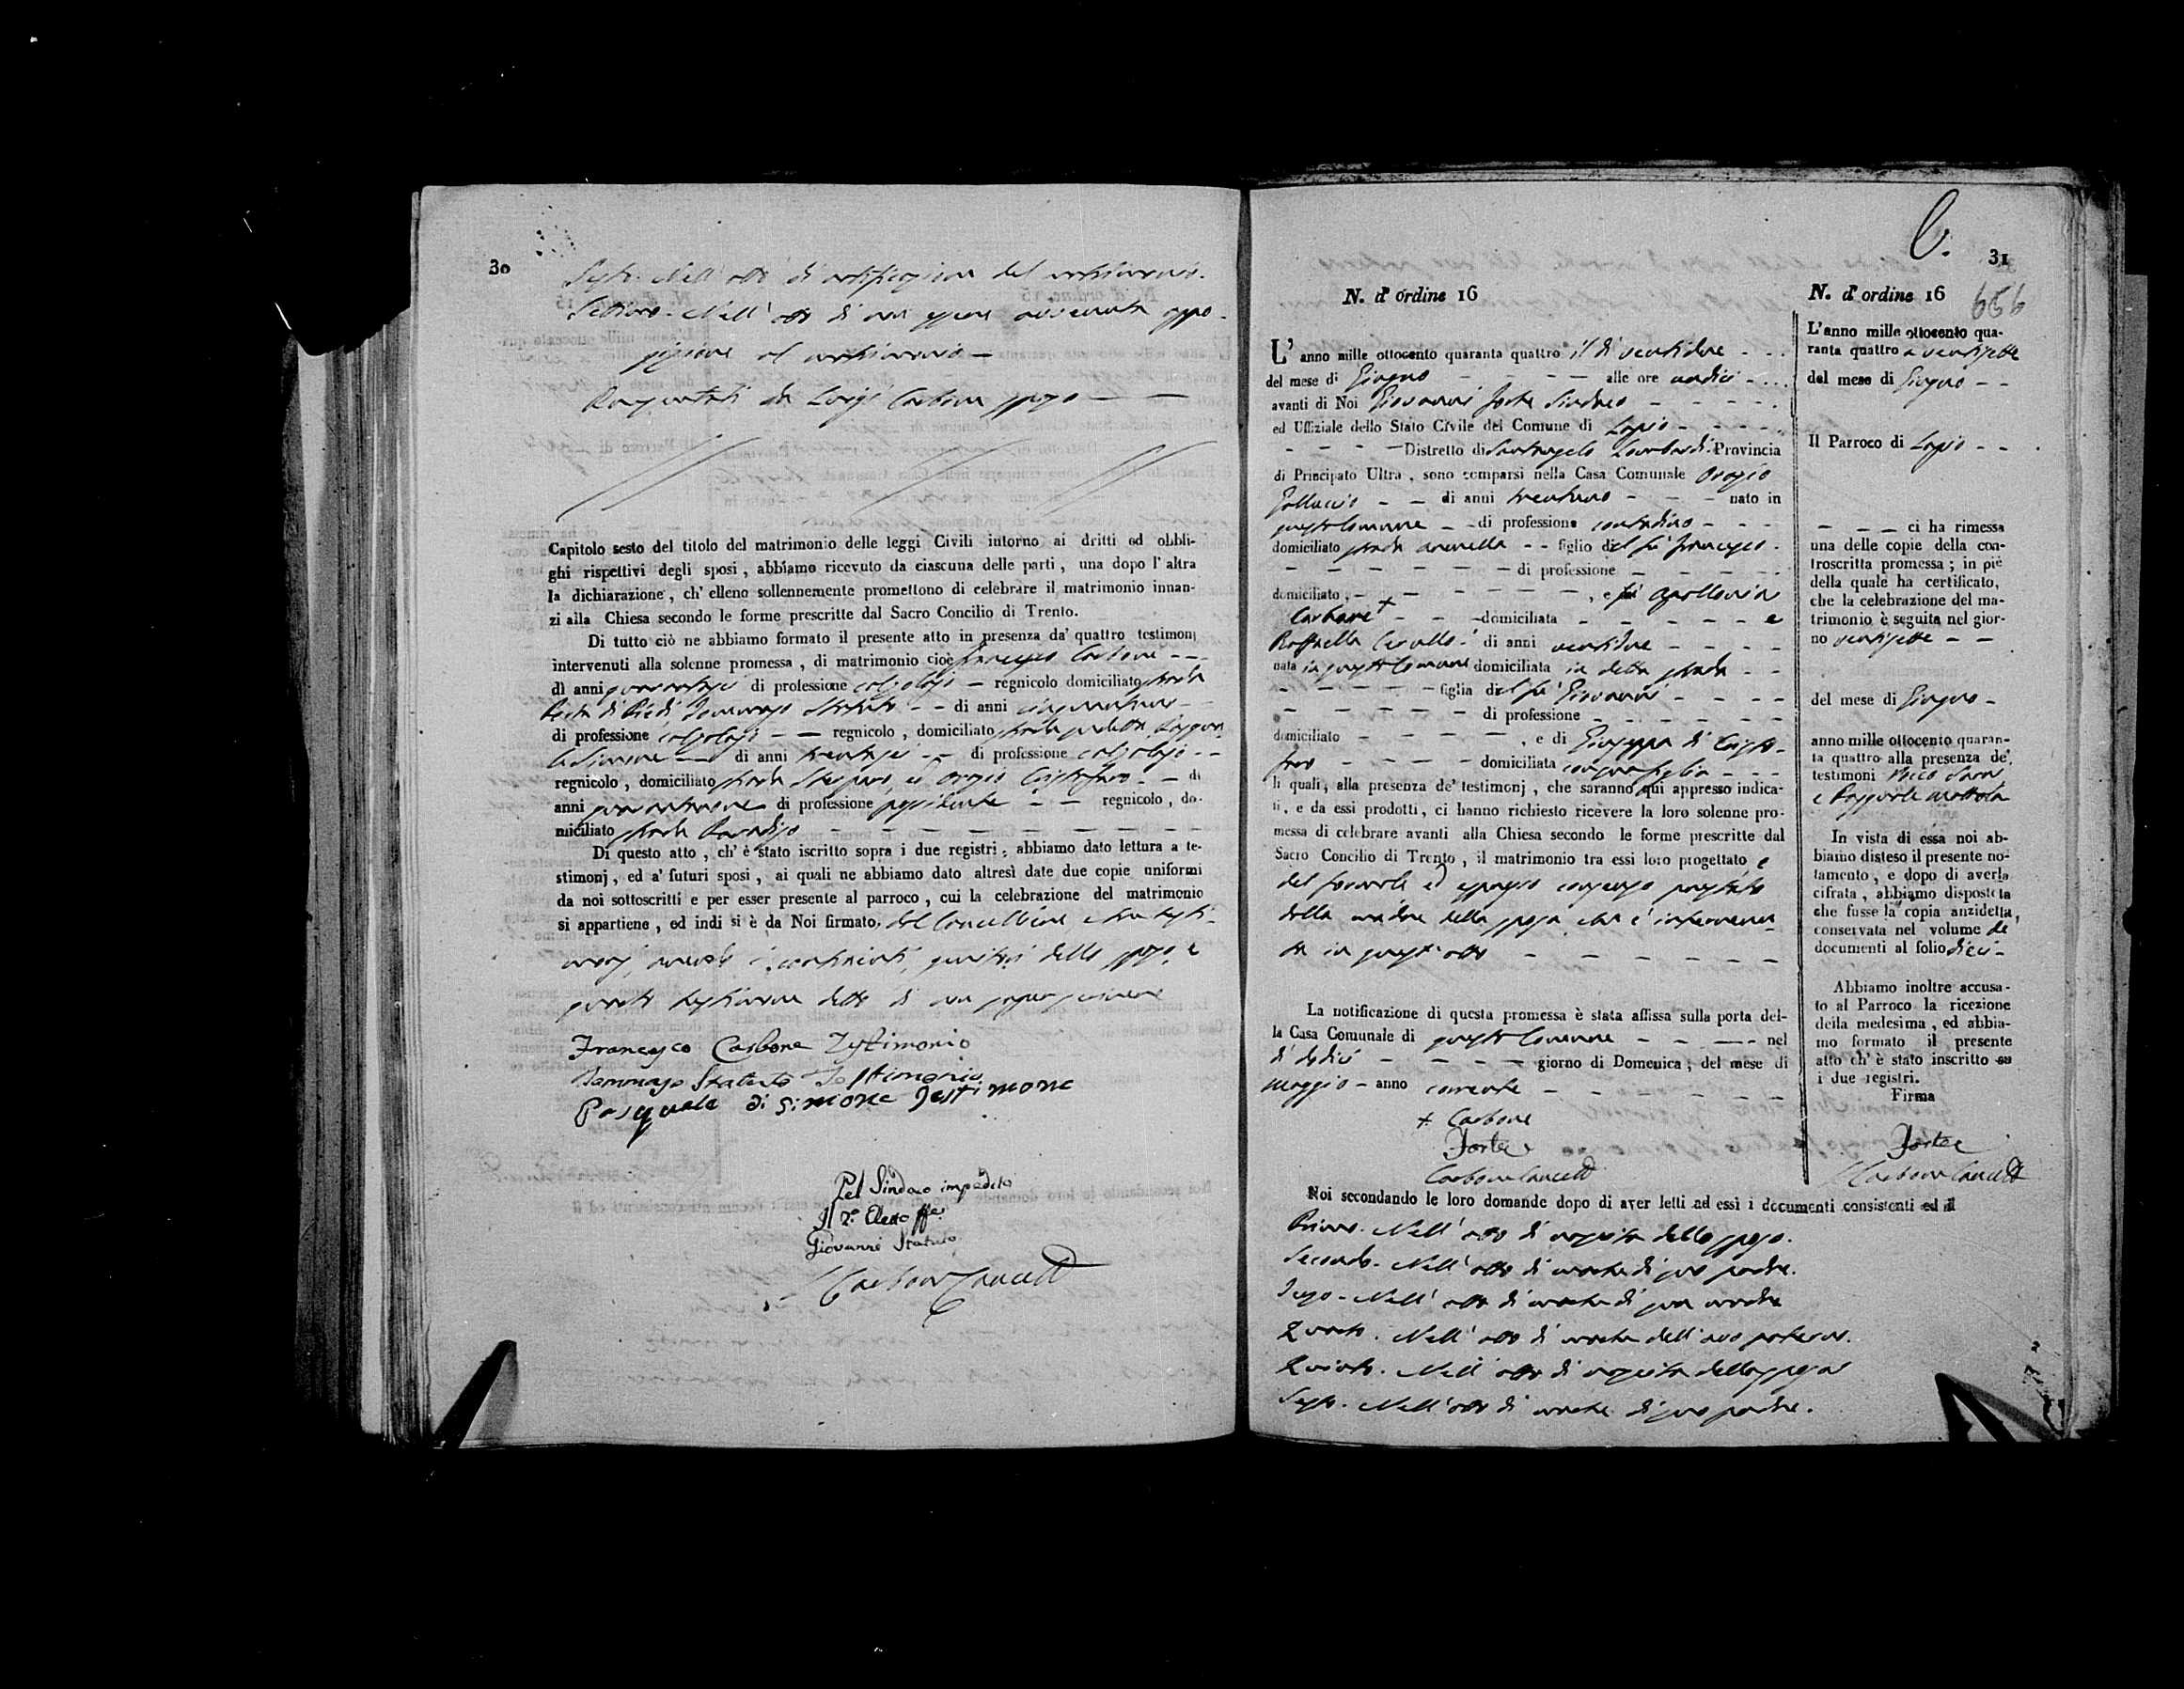 30
Sesto. Nell' atto di notificazione del matrimonio.
Settimo. Nell' atto di non essere avvenuta oppo-
sizione al matrimonio —
Luigi Carbone sposo — —
Capitolo sesto del titolo del matrimonio delle leggi Civili intorno ai dritti ed obbli-
ghi rispettivi degli sposi, abbiamo ricevuto da ciascuna delle parti, una dopo l'altra
la dichiarazione, ch' elleno sollennemente promettono di celebrare il matrimonio innan-
zi alla Chiesa secondo le forme prescritte dal Sacro Concilio di Trento.
Di tutto ciò ne abbiamo formato il presente atto in presenza da' quattro testimonj
intervenuti alla solenne promessa, di matrimonio cioè Francesco Carbone — —
di anni quarantasei di professione calzolajo — regnicolo domiciliato strada
di Piedi Dommaso Statuto — — di anni cinquantuno —
di professione calzolajo — — regnicolo, domiciliato strada sudetta Pasquale
di Simone — di anni trentasei — — di professione calzolajo — —
regnicolo, domiciliato strada ed Orazio Cristofaro — — di
anni quarantanove di professione possidente — — regnicolo, do-
miciliato strada Paradiso — — — — — — — —
Di questo atto, ch' è stato iscritto sopra i due registri, abbiamo dato lettura a te-
stimonj, ed a' futuri sposi, ai quali ne abbiamo dato altresì date due copie uniformi
da noi sottoscritti e per esser presente al parroco, cui la celebrazione del matrimonio
si appartiene, ed indi si è da Noi firmato, dal Cancelliere e tre testi-
monj, avendo i contraenti, genitori dello sposo, e
quarto testimone detto di non saper scrivere
Francesco Carbone Testimonio
Dommaso Statuto Testimonio
Pasquale di Simone Testimone
Pel Sindaco impedito
Il 2.° Eletto ff.
Giovanni Statuto
Carbone Cancell.
31
656
N. d' ordine 16
L' anno mille ottocento quaranta quattro il dì ventidue - - -
del mese di Giugno — — — — alle ore undici - - -
avanti di Noi Giovanni Forte Sindaco — — — — —
ed Uffiziale dello Stato Civile del Comune di Lapio - - - -
— — — Distretto di Santangelo Lombardi Provincia
di Principato Ultra, sono comparsi nella Casa Comunale Orazio
— — di anni trentuno — — — nato in
questo Comune — — di professione contadino — — —
domiciliato strada — — figlio del fù Francesco -
— — — — — — di professione — — — — —
domiciliato, — — — — — — , e fù Apollonia
Carbone + — — domiciliata — — — — — e
Raffaella di anni ventidue — — — —
nata in questo Comune domiciliata in detta strada — —
— — — — — figlia del fù Giovanni — — — —
— — — — — di professione — — — — — —
domiciliato — — — — — , e di Giuseppa di Cristo-
faro — — — — domiciliata con sua figlia — — —
li quali, alla presenza de' testimonj, che saranno qui appresso indica-
ti, e da essi prodotti, ci hanno richiesto ricevere la loro solenne pro-
messa di celebrare avanti alla Chiesa secondo le forme prescritte dal
Sacro Concilio di Trento, il matrimonio tra essi loro progettato e
del formale ed espresso consenso prestato
dalla madre della sposa, che è intervenu-
ta in quest' atto — — — — — — —
La notificazione di questa promessa è stata affissa sulla porta del-
la Casa Comunale di questo Comune — — — — nel
dì dodici — — — — giorno di Domenica, del mese di
Maggio — anno corrente — — — — — —
+ Carbone
Forte
Carbone Cancell.
Noi secondando le loro domande dopo di aver letti ad essi i documenti consistenti ed il
Primo. Nell' atto di nascita dello sposo.
Secondo. Nell' atto di morte di suo padre.
Terzo. Nell' atto di morte di sua madre
Quarto. Nell' atto di morte dell' avo paterno.
Quinto. Nell' atto di nascita della sposa
Sesto. Nell' atto di morte di suo padre.
N. d' ordine 16
L' anno mille ottocento qua-
ranta quattro a ventisette
del mese di Giugno — —
Il Parroco di Lapio — —
— — — ci ha rimessa
una delle copie della con-
troscritta promessa; in piè
della quale ha certificato,
che la celebrazione del ma-
trimonio è seguita nel gior-
no ventisette — —
del mese di Giugno —
anno mille ottocento quaran-
ta quattro alla presenza de'
testimoni
e Pasquale
In vista di essa noi ab-
biamo disteso il presente no-
tamento, e dopo di averla
cifrata, abbiamo disposto la
che fusse la copia anzidetta,
conservata nel volume de'
documenti al folio dieci —
Abbiamo inoltre accusa-
to al Parroco la ricezione
della medesima, ed abbia-
mo formato il presente
atto ch' è stato inscritto su
i due registri.
Firma
Forte
Carbone Cancell.